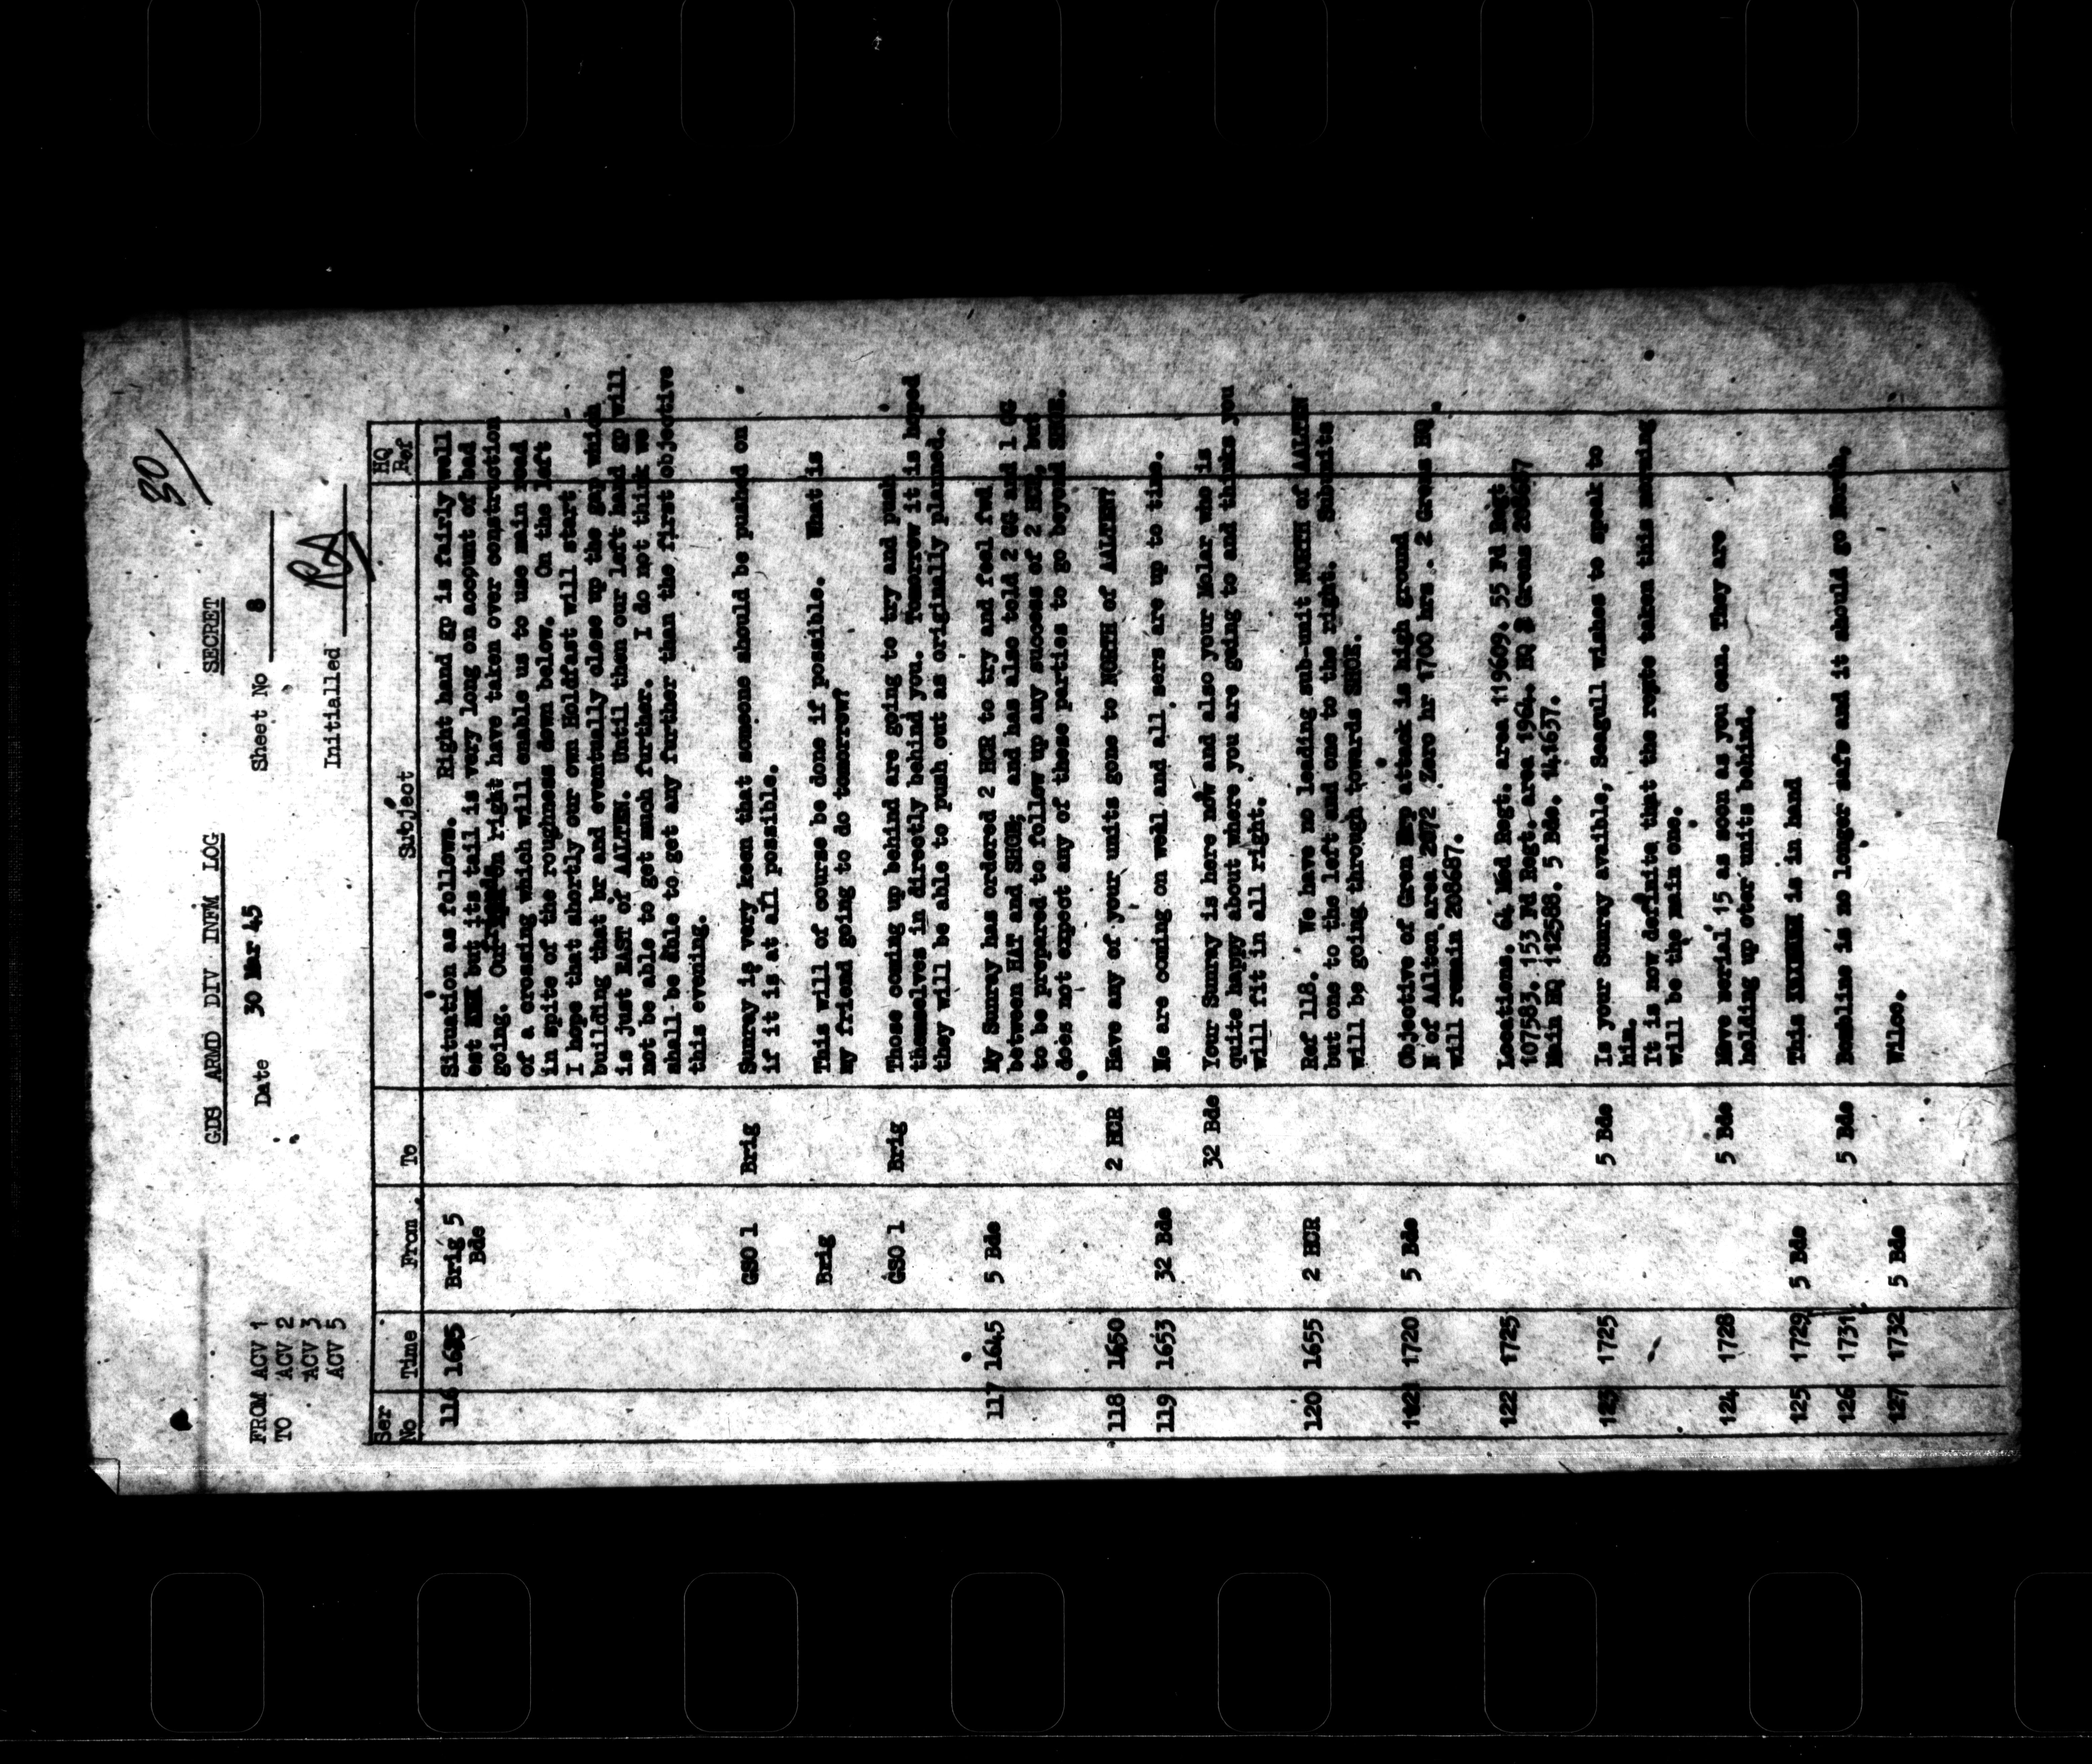 30/
GDS ARMD DIV INFM LOG SECRET
FROM ACV 1 Date 30 Mar 45 Sheet No 8
TO ACV 2
ACV 3
ACV 5 Initialled RA
Ser No Time From To Subject HQ Ref
116 1635 Brig 5 Bde Situation as follows. Right hand gp is fairly well
est but its tail is very long on account of bad
going. Our right have taken over construction
of a crossing which will enable us to use main road
in spite of the roughness down below. On the left
I hope that shortly our own Holdfast will start
building that br and eventually close up the gap which
is just EAST of AALTEN. Until then our left hand gp will
not be able to get much further. I do not think we
shall be able to get any further than the first objective
this evening.
GSO 1 Brig Sunray is very keen that someone should be pushed on
if it is at all possible.
Brig This will of course be done if possible. What is
my friend going to do tomorrow?
GSO 1 Brig Those coming up behind are going to try and push
themselves in directly behind you. Tomorrow it is hoped
they will be able to push out as originally planned.
117 1645 5 Bde My Sunray has ordered 2 HCR to try and feel fwd
between HAT and SHOE, and has also told 2 GG and 1 GG
to be prepared to follow up any success of 2 HCR, but
does not expect any of these parties to go beyond SHOE.
118 1650 2 HCR Have any of your units gone to NORTH of AALTEN?
119 1653 32 Bde We are coming on well and all sers are up to time.
32 Bde Your Sunray is here now and also your Molar who is
quite happy about where you are going to and thinks you
will fit in all right.
120 1655 2 HCR Ref 118. We have no leading sub-unit NORTH of AALTEN
but one to the left and one to the right. Submits
will be going through towards SHOE.
1720 5 Bde Objective of Gren Grp attack is high ground
N of AAlten area 2072 Zero hr 1700 hrs. 2 Grens HQ
will remain 208687.
122 1725 Locations. 64 Med Regt. area 119609. 55 Fd Regt
107583. 153 Fd Regt. area 1964. HQ 2 Grens
Main HQ 112588. 5 Bde. 141637.
123 1725 5 Bde Is your Sunray avaible, Seagull wishes to speak to
him.
It is now definite that the route taken this morning
will be the main one.
124 1728 5 Bde Move serial 15 as soon as you can. They are
holding up oter units behind.
125 1729 5 Bde This is in hand
126 1731 5 Bde Bombline is no longer safe and it should go North.
127 1732 5 Bde Wilco.